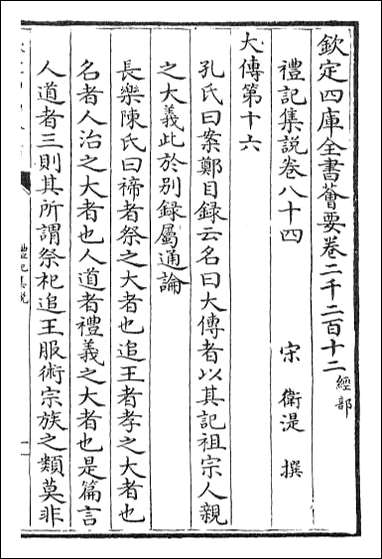 欽定四庫全書薈要卷二千二百十二 經部
禮記集說卷八十四
宋 衛湜 撰
大傳第十六
孔氏曰案鄭目録云名曰大傳者以其記祖宗人親
之大義此於别録屬通論
長樂陳氏曰禘者祭之大者也追王者孝之大者也
名者人治之大者也人道者禮義之大者也是篇言
人道者三則其所謂祭祀追王服術宗族之類莫非
禮記集說
一